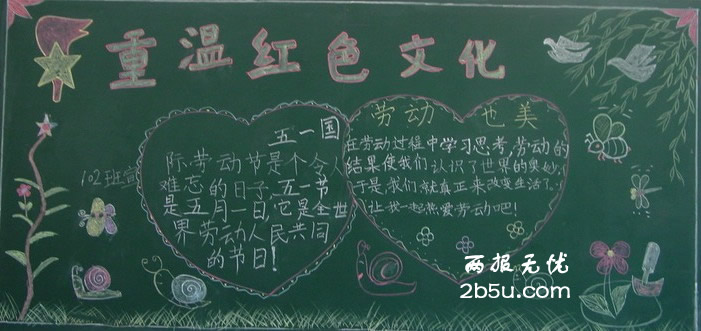 重温红色文化
五一国
际劳动节是个令人
难忘的日子,五一节
是五月一日,它是全世
界劳动人民共同
的节日!
劳动 也美
在劳动过程中学习思考,劳动的
结果使我们认识了世界的奥妙,
于是,我们就真正来改变生活了。
让我一起热爱劳动吧!
102班
两报无优
2b5u.com